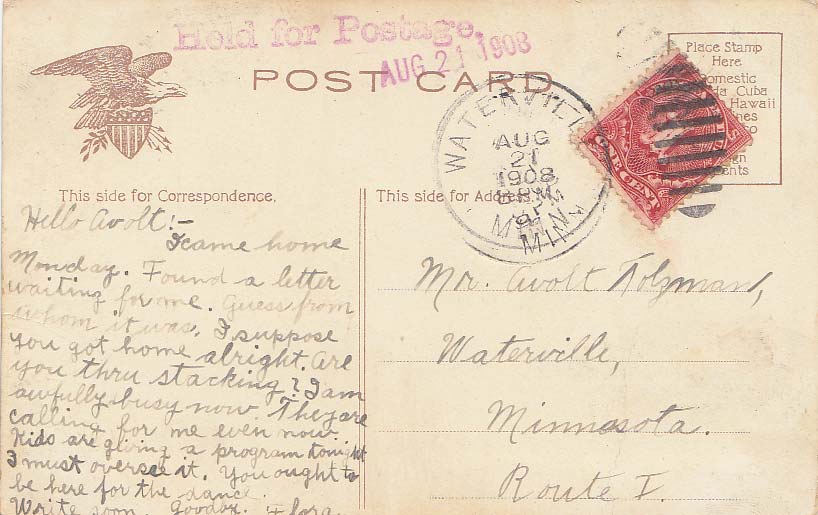 Held for Postage.
AUG 21 1908
POST CARD
Place Stamp
Here
Domestic
Cuba
Hawaii
WATERVILLE
AUG
21
1908
MINN.
ONE CENT
This side for Correspondence.
This side for Address.
Hello Avolt!-
I came home
Monday. Found a letter
waiting for me. Guess from
whom it was. I suppose
you got home alright. Are
you thru stacking? I am
awfully busy now. They are
calling for me even now.
Kids are giving a program tonight
I must oversee it. You ought to
be here for the dance.
Write soon. Goodby. Flora.
Mr. Avolt Tolzman,
Waterville,
Minnesota.
Route I.